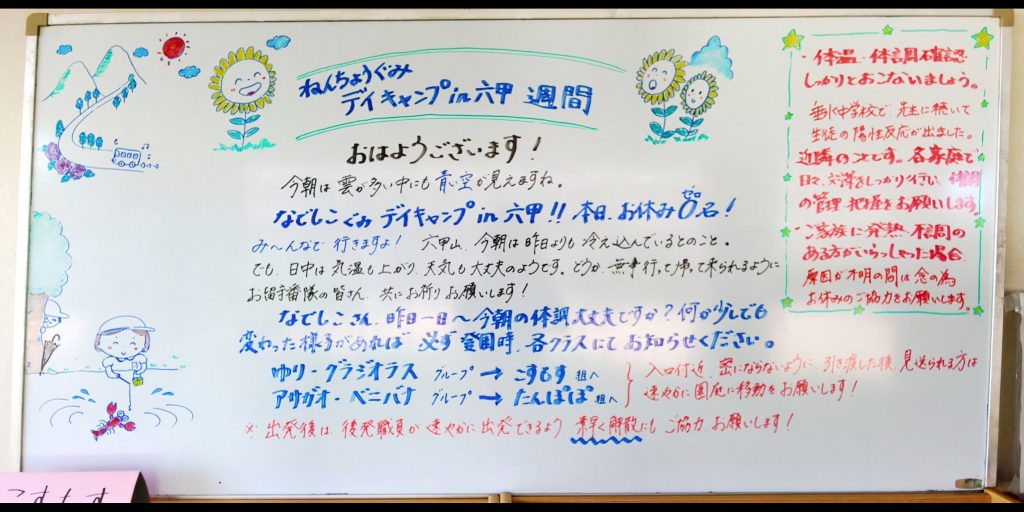 ねんちょうぐみ
デイキャンプin六甲 週間
おはようございます！
今朝は雲が多い中にも青い空が見えますね。
なでしこぐみ デイキャンプin六甲!! 本日、お休み0名！
ゼロ
み〜んなで行きますよ！ 六甲山、今朝は昨日よりも冷え込んでいるとのこと。
でも、日中は気温も上がり、天気も大丈夫のようです。どうか、無事行って帰って来られるように
お留守番隊の皆さん、共にお祈りお願いします！
なでしこさん、昨日一日〜今朝の体調、大丈夫ですか？何か少しでも
変わった様子があれば 必ず登園時、各クラスにてお知らせください。
ゆり・グラジオラス グループ → こすもす 組へ
アサガオ・ベニバナ グループ → たんぽぽ 組へ
入口付近、密にならないように、引き渡した後、見送られる方は
速やかに園庭に移動をお願いします！
※ 出発後は、後発職員が速やかに出発できるよう 素早く解散にもご協力、お願いします！
・体温、体調確認
しっかりとおこないましょう。
中学校で、先生に続いて
生徒の陽性反応が出ました。
近隣のことです。各家庭で
日々、対策をしっかり行い、体調
の管理・把握をお願いします
・ご家族に発熱・不調の
ある方がいらっしゃった場合
原因が不明の間は念の為
お休みのご協力をお願いします。
こすもす